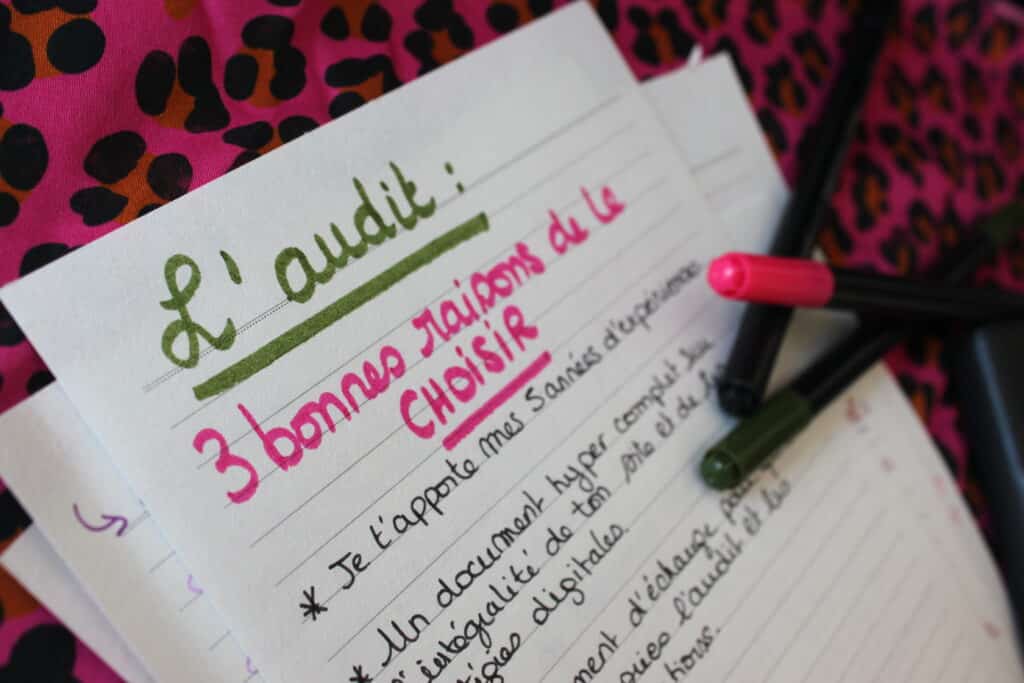 L'audit :
3 bonnes raisons de le
CHOISIR
* Je t'apporte mes 5 années d'expériences
* Un document hyper complet sur
l'intégralité de ton site et de
digitales.
ment d'échange
l'audit et les